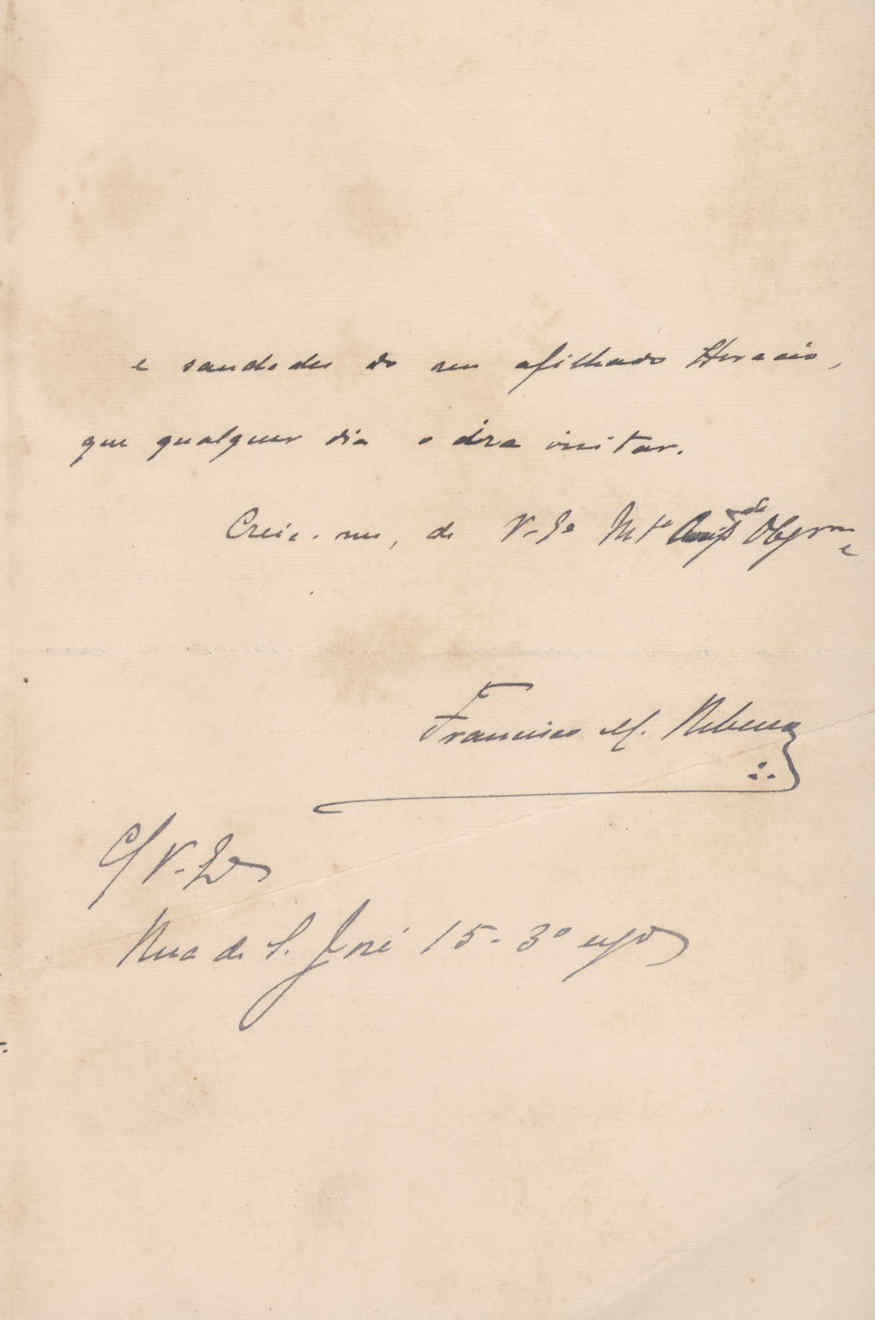 e saudades do seu afilhado Horacio,
que qualquer dia o irá visitar.
Creia-me, de V. Ex.ª Mt.º Amig.º
Francisco M. Ribeiro
C/ V. Ex.ª
Rua de S. José 15-3º esqº